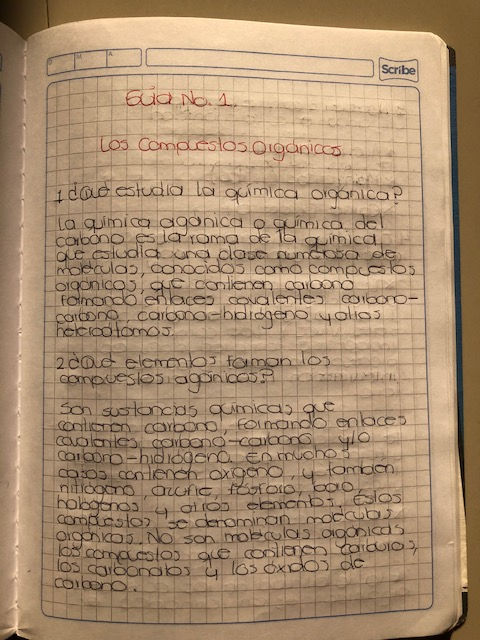 D M A
Scribe
Guía No. 1.
Los Compuestos Orgánicos
1 ¿Qué estudia la química orgánica?
La química agánica o química del
carbono es la rama de la química
que estudia una clase numerosa de
moléculas, conocidos como compuestos
orgánicos, que contienen carbono
formando enlaces covalentes carbono-
carbono carbono-hidrógeno y otros
heteroátomos.
2 ¿Qué elementos forman los
compuestos agánicos?
Son sustancias químicas que
contienen carbono, formando enlaces
covalentes carbono-carbono y/o
carbono-hidrógeno. En muchos
casos contienen oxígeno, y también
nitrógeno, azufre, fósforo, boro
halógenos y otros elementos. Estos
compuestos se denominan moléculas
orgánicas. No son moléculas orgánicas
los compuestos que contienen carburos,
los carbonatos y los óxidos de
carbono.